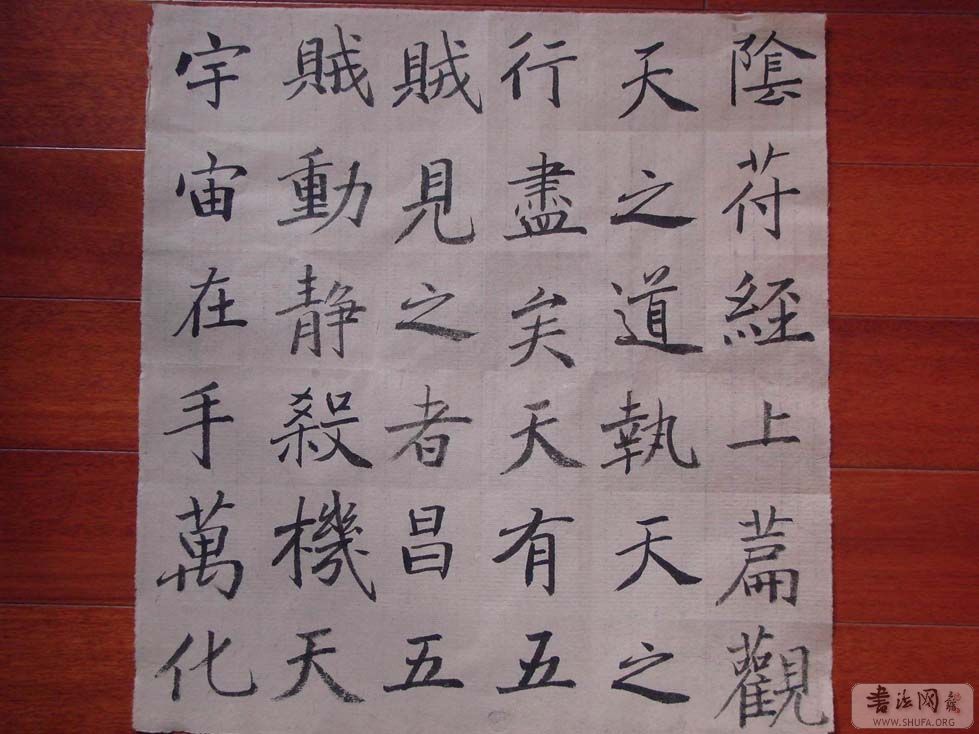 陰苻經上篇觀
天之道執天之
行盡矣天有五
賊見之者昌五
賊動静殺機天
宇宙在手萬化
书法网
WWW.SHUFA.ORG